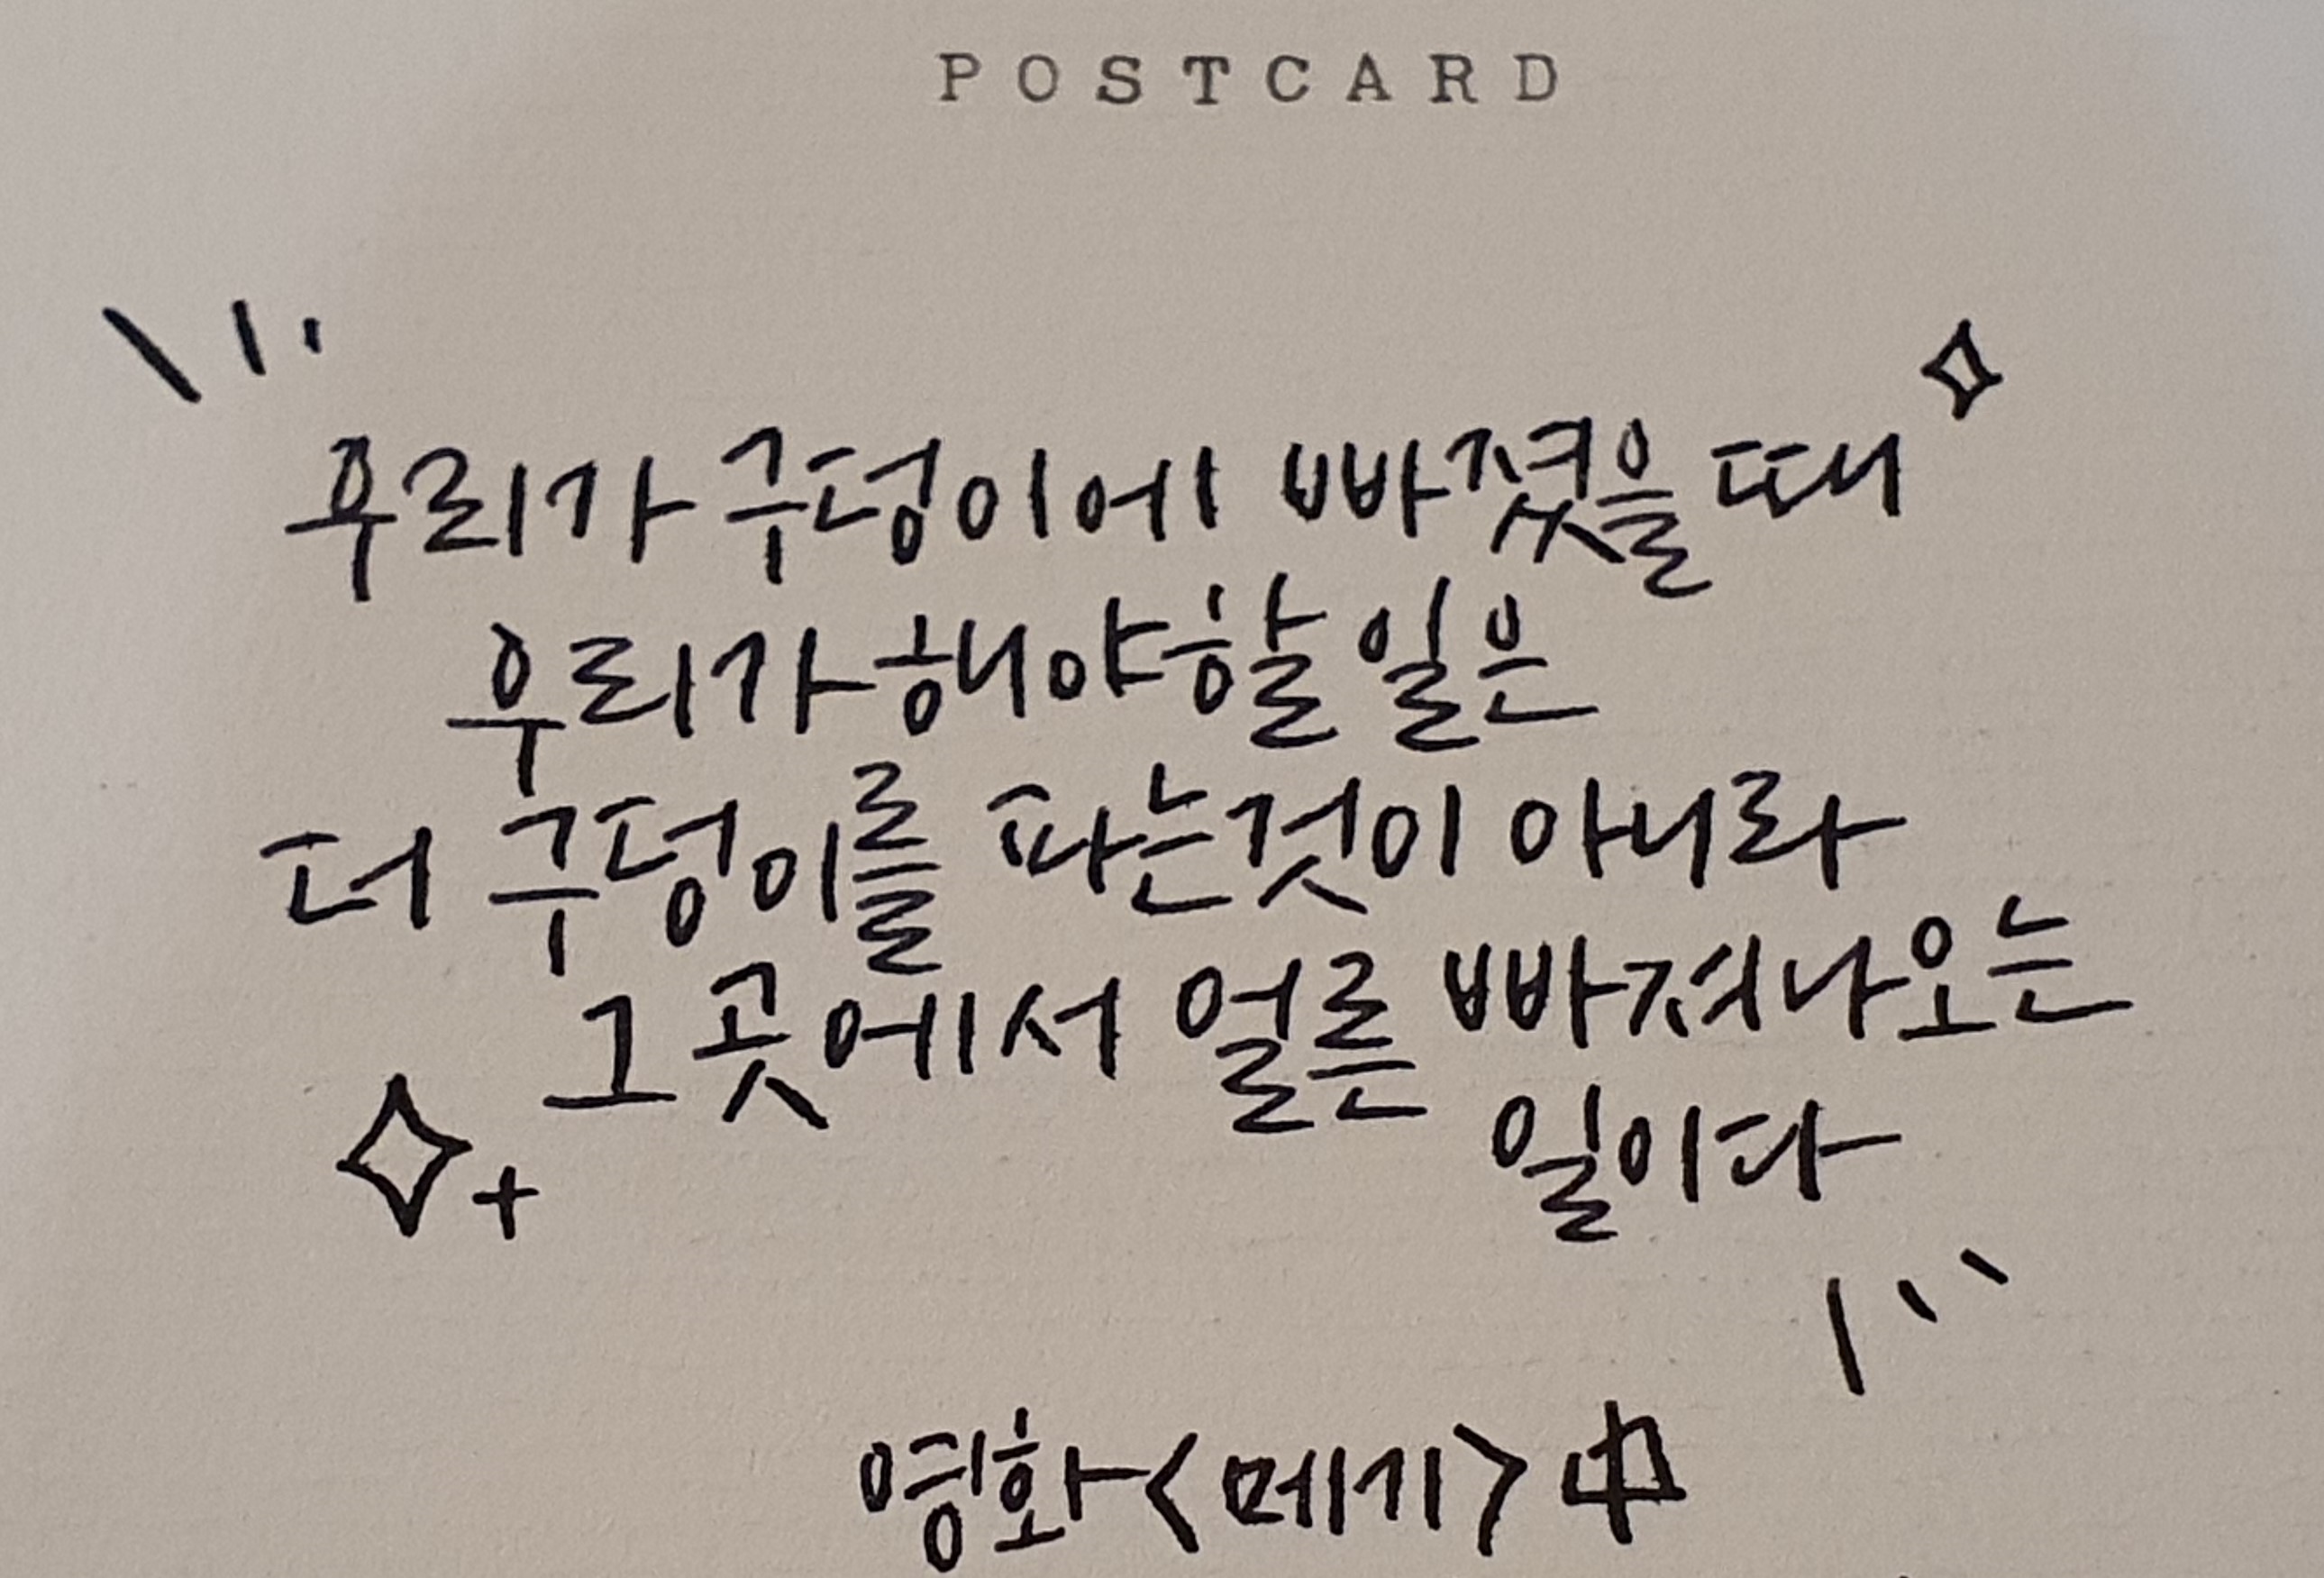 POSTCARD
우리가 구덩이에 빠졌을때
우리가 해야할 일은
더 구덩이를 파는것이 아니라
그 곳에서 얼른 빠져나오는
일이다
영화<메기>中